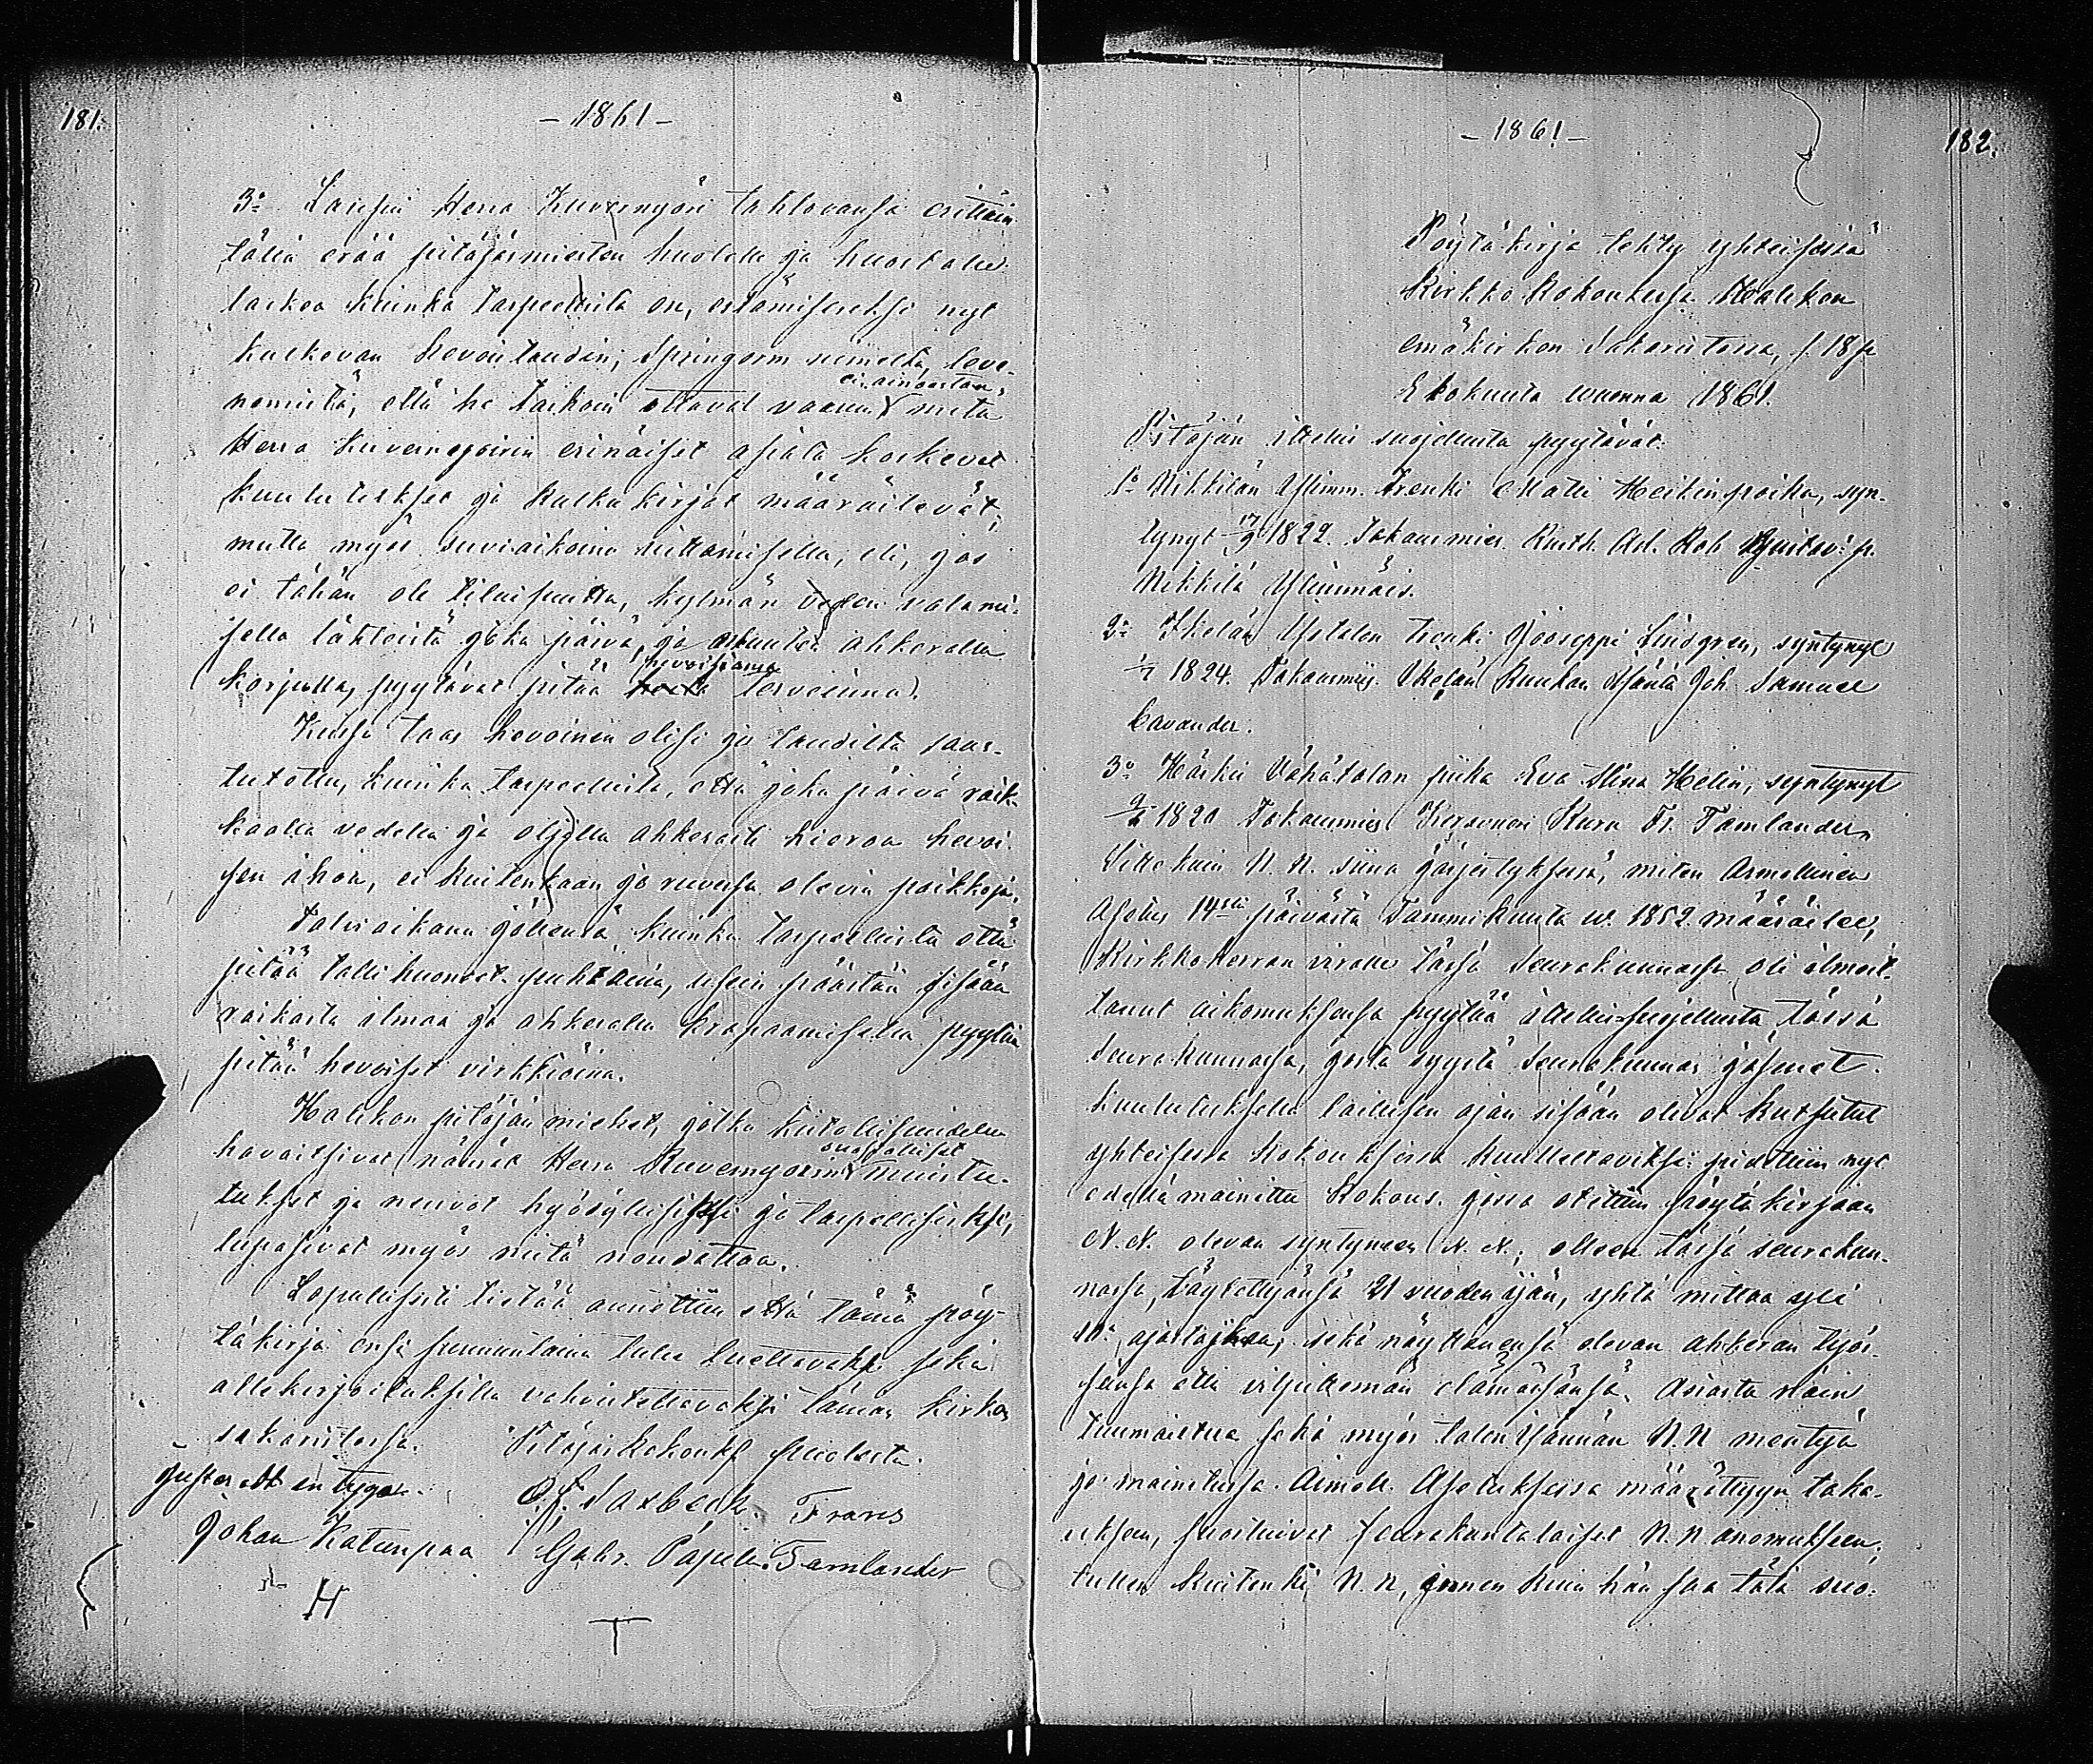 181.
- 1861 -
3:o Lausui Herra Kuvernyöri tahtovansa erittäin
tällä erää pitäjänmiesten huolelle ja huostalle
laskea kuinka tarpeellista on, estämiseksi nyt
kulkevan hevoistaudin, Springorm nimeltä, leve-
nemistä, että he tarkoin ottavat vaarun ei ainoastan mitä
Herra Kuvernyöörin erinäiset asiata koskevat
kuulutukset ja kulkukirjat määräilevät,
mutta myös suviaikana uittamisella, eli, jos
ei tähän ole tilaisuutta, kylmän veden valami-
sella lähteistä joka päivä, ja ahkeralla
korjulla, pyytävät pitää hevoisiansa terveinnä.
Kussa taas hevoinen olisi jo taudilta saas-
tutettu, kuinka tarpeellista, että joka päivä raik-
kaalla vedellä ja öljyllä ahkerasti hieroa hevoi-
sen ihoa, ei kuitenkaan jo ruvessa olevia paikkoja.
Talviaikana jällensä kuinka tarpeellista että
pitää tallihuoneet puhtaina, usein päästää sisään
raikasta ilmaa ja ahkeralla krapaamisella pyytää
pitää hevoiset virkkiöinä.
Halikon pitäjän miehet, jotka kiitollisuudella
havaitsivat nämät Herra Kuvernyörin suosioliset muistu-
tukset ja neuvot hyödyllisiksi ja tarpellisiksi,
lupasivat myös niitä noudattaa.
Lopullisesti tietää annettiin että tämä pöy-
täkirja ensi sunnuntaina tulee luettavaksi sekä
allekirjoituksilla vahvistettavaksi tämän kirkon
sakaristossa. Pitäjänkokouks. puolesta.
Justeratt intygar. O. F. Saxbeck. Frans
Johan Katunpaa Gabr. Päjula. Tamlander
H T
- 1861 -
182.
Pöytäkirja tehty yhteisessä
Kirkko Kokouksessa Halikon
emäkirkon Sakaristossa, s. 18 p.
Lokakuuta wuonna 1861.
Pitäjän ittellis suojelusta pyytävät:
1:o Mikkilän Ylimm. Trenki Matti Heikinpoika, syn-
tynyt 17/9 1822. Takausmies Rusth. Ad. Rob Gustav: p.
Mikkilä Ylimmäis.
2:o Ikelän Ylitalon trenki Jooseppi Lindgren, syntynyt
1824. Takausmies. Ikelän Ruukan Isäntä Joh. Samuel
Cavander.
3:o Härkii Vähätalon piika Eva Stina Helin, syntynyt
1820 Takausmies Kersonen Kuru Fr. Tamlander
Sitte kuin N. N. siinä järjestyksessä, miten Armollinen
Asetus 14:stä päivästä Tammikuuta w. 1852 määräilee,
Kirkkoherran viralle tässä Seurakunnassa oli ilmoit-
tanut aikomuksensa pyytää ittellis suojellusta tässä
Seurakunnassa, josta syystä Seurakunnan jäsenet
kuulutuksella laillisen ajan sisään olivat kutsutut
yhteisessä kokouksessa kuulleltaviksi: pidettiin nyt
edellä mainittu Kokous. jossa otettiin pöytäkirjaan
N. N. olevan syntyneen N. N.; olleen tässä seurakun-
nassa, täytettyänsä 21 vuoden ijän, yhtä mittaa yli
10: ajastajkaa; sekä näyttäneensä olevan ahkeran työs-
sänsä että viljittömän elämässänsä. Asiasta näin
tuumaistua sekä myös talon Isännän N. N mentyä
jo mainitussa Armoll. Asetuksessa määrättyyn taka-
ukseen, suostuivat seurakuntalaiset N. N anomukseen,
tullen kuitenki N. N, ennen kuin hän saa tätä suo-